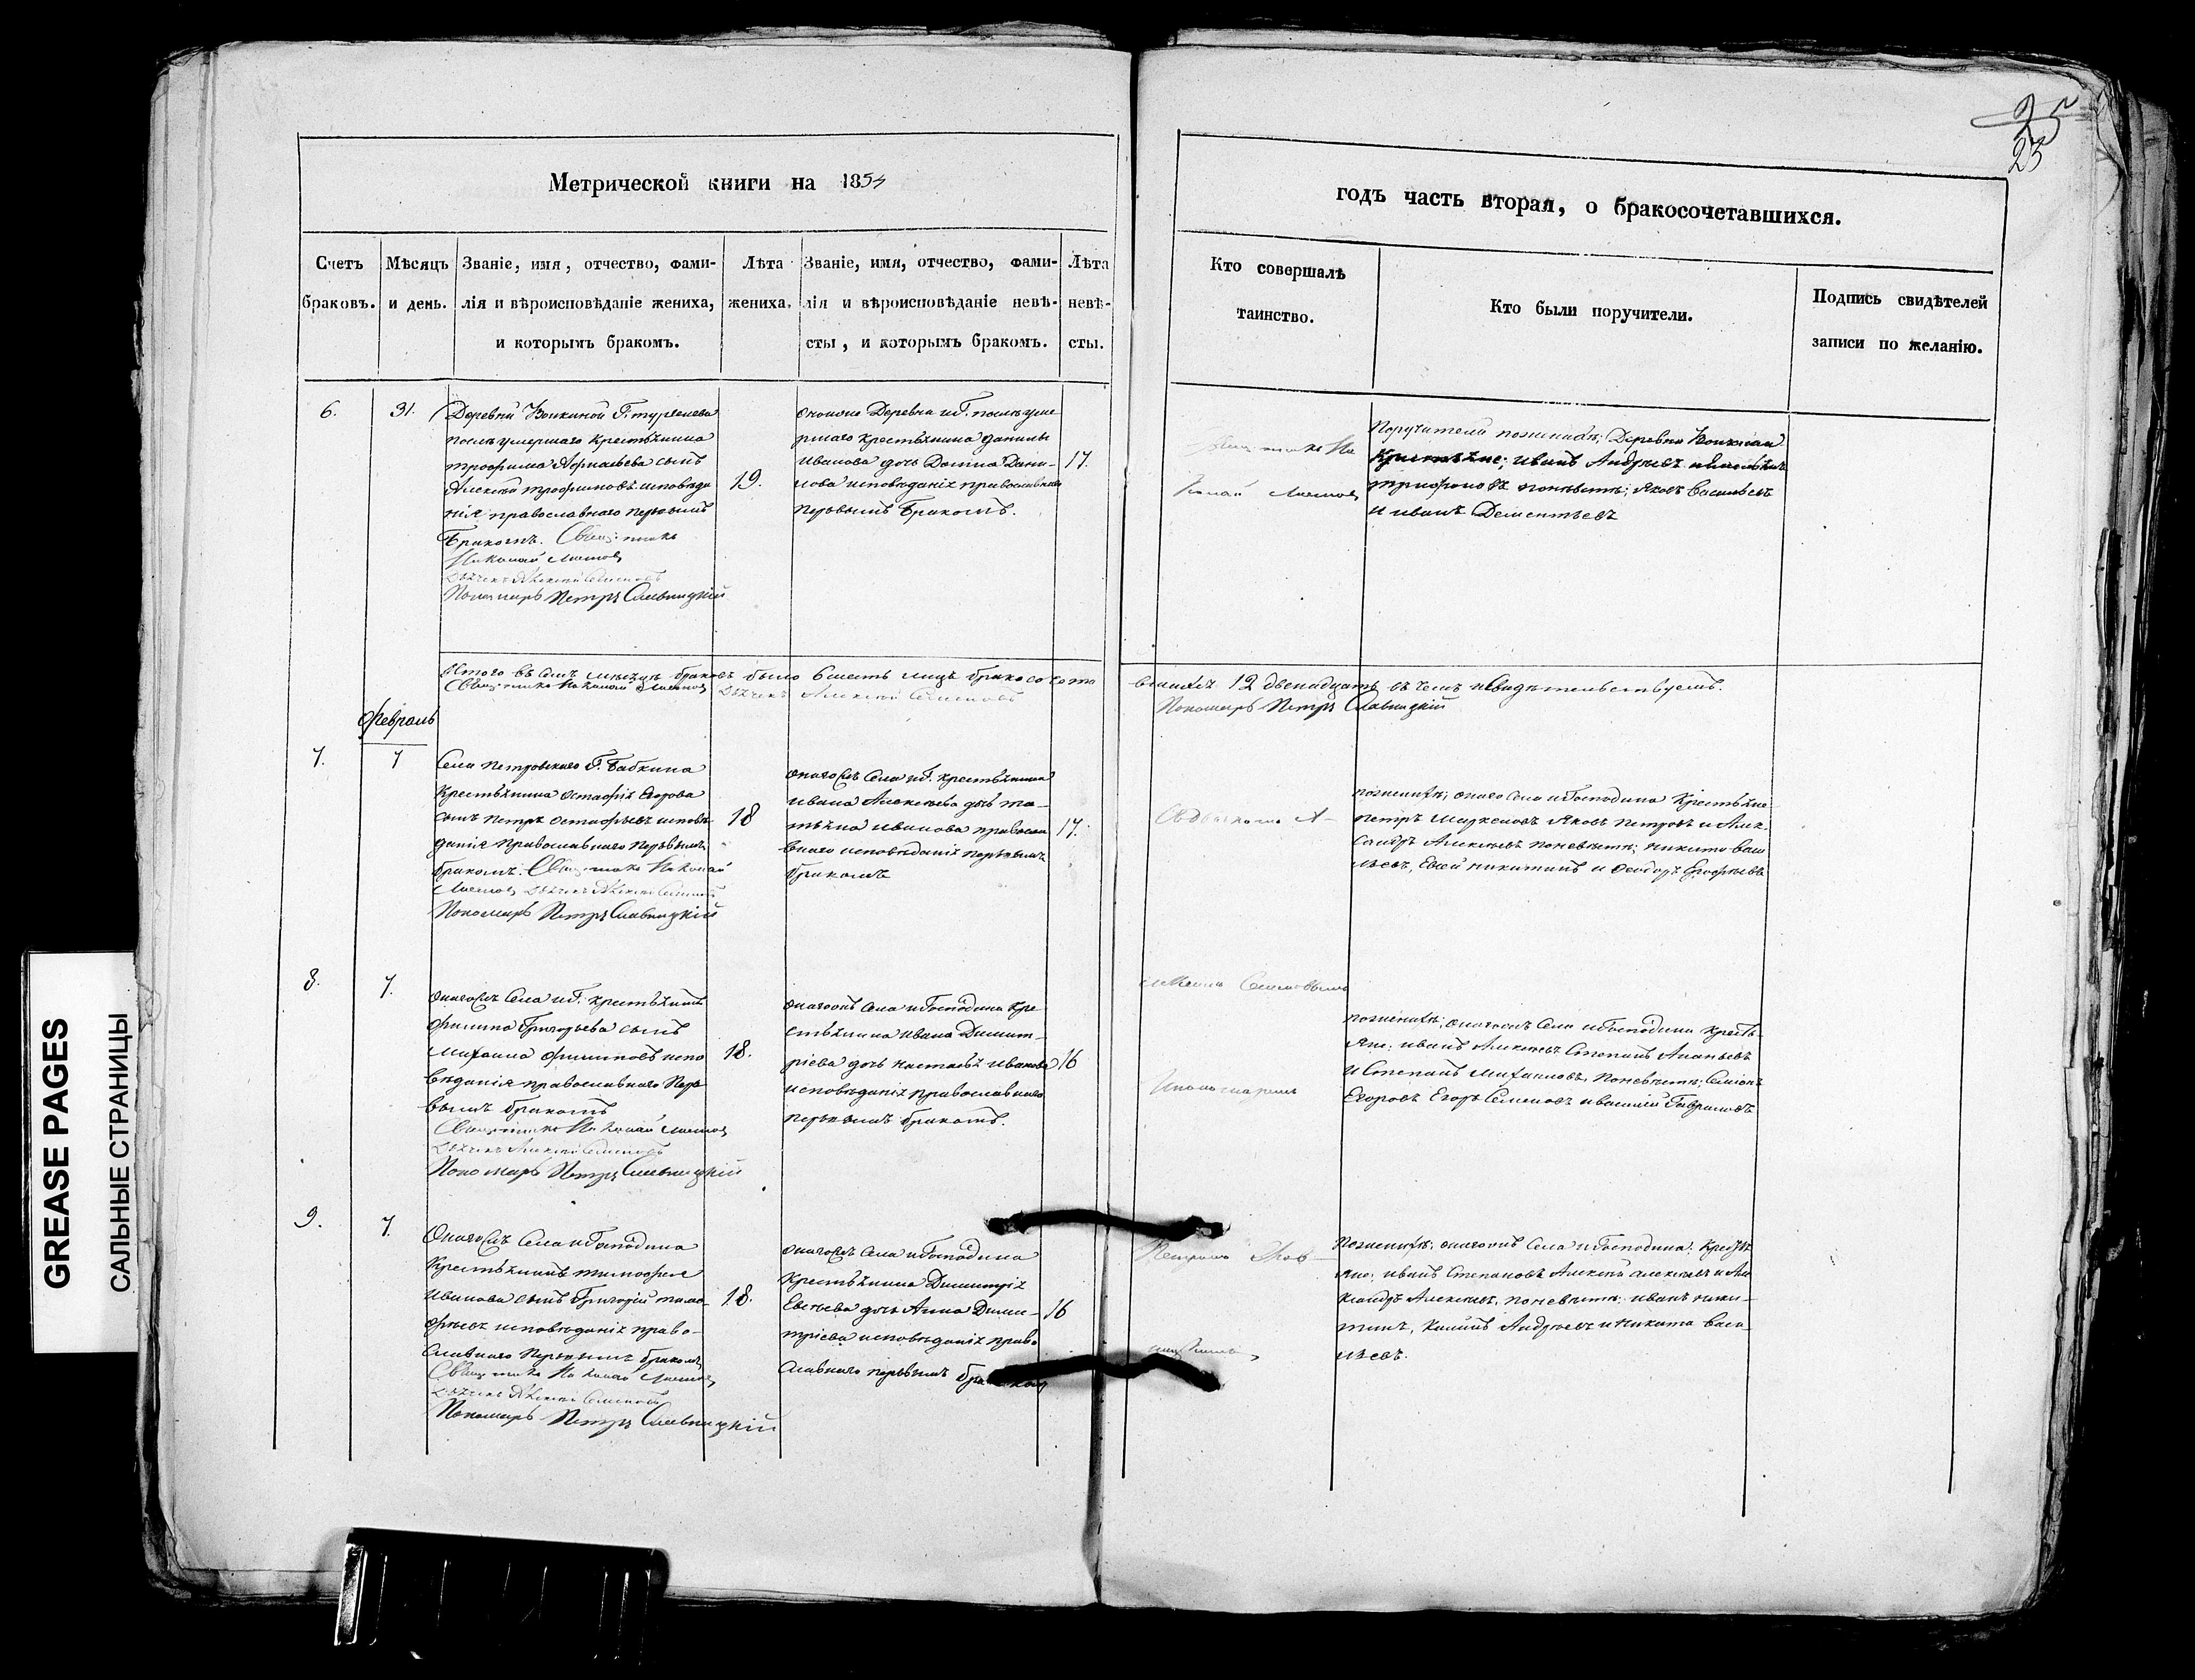 25
25
Метрической книги на 1854
годъ часть вторая, о бракосочетавшихся.
Счетъ браковъ.
Мѣсяцъ и день.
Званіе, имя, отчество, фами-
лія и вѣроисповѣданіе жениха,
и которымъ бракомъ.
Лѣта жениха.
Званіе, имя, отчество, фами-
лія и вѣроисповѣданіе невѣ-
сты, и которымъ бракомъ.
Лѣта невѣ-
сты.
Кто совершалъ
таинство.
Кто были поручители.
Подпись свидѣтелей
записи по желанію.
6.
31.
Деревни Г. Тургенева
умершаго крестьянина
трофима сынъ
Алексѣй трофимовъ исповѣда
нія православнаго первымъ
бракомъ. Священникъ
Николай
Дьячекъ Алексѣй Семеновъ
Пономарь Петръ Славницкій
19.
Деревни и Г. уме
ршаго крестьянина данилы
Иванова дочь Домна Дани-
лова исповѣданія православнаго
первымъ бракомъ.
17.
Священникъ Ни
колай
Поручители по женихѣ; Деревни
Крестьяне; Иванъ Андреевъ
по невѣстѣ; Яковъ Васильевъ
и иванъ Дементьевъ
Итого въ семъ мѣсяцѣ браковъ было 6 шесть лицъ бракосочета
Священникъ Николай Дьячекъ Алексѣй Семеновъ
вшихся 12 двенадцать въ чемъ и Свидѣтельствуемъ.
Пономарь Петръ Славницкій
февраль
7.
7
Села Петровскаго Г. Бабкина
Крестьянина остафія Егорова
сынъ петръ остафьевъ исповѣ-
данія православнаго первымъ
бракомъ. Священникъ Николай
Дьячекъ Алексѣй Семеновъ
Пономарь Петръ Славницкій
18
Села и Г. крестьянина
ивана Алексѣева дочь та-
тьяна иванова правосла
внаго исповѣданія первымъ
бракомъ
17.
Съ дьячкомъ А-
по женихѣ; онаго села и Господина Крестьяне
петръ Яковъ петровъ и Алек-
сандръ Алексѣевъ по невѣстѣ; никита васи
льевъ, никитинъ и Ѳеодоръ
8.
7.
Села и Г. крестьянина
филипа Григорьева сынъ
Михаила филиповъ испо
вѣданія православнаго Пер
вымъ бракомъ
Священникъ Николай
Дьячекъ Алексѣй Семеновъ
Пономарь Петръ Славницкій
18.
Села и Господина Кре
стьянина ивана Димит-
ріева дочь настасья иванова
исповѣданія православнаго
первымъ бракомъ.
16
лексѣемъ Семеновымъ
И пономаремъ
по женихѣ; Села и Господина Кресть
яне; иванъ Алексѣевъ Степанъ Ананьевъ
и Степанъ Михаиловъ, по невѣстѣ; Семіонъ
Егоровъ Егоръ Семеновъ и василій Гавриловъ
9.
7.
Села и Господина
Крестьянина тимофея
Иванова сынъ Григорій тимо-
феевъ исповѣданія право-
славнаго Первымъ бракомъ
Священникъ Николай
Дьячекъ Алексѣй Семеновъ
Пономарь Петръ Славницкій
18.
Села и Господина
Крестьянина Димитрія
дочь Анна Дими-
тріева исповѣданія право
славнаго первымъ бракомъ
16
Петромъ Слав-
ницкимъ
По женихѣ; Села и Господина; Кресть
яне; иванъ Степановъ Алексѣй алексѣевъ и Але
ксандръ Алексѣевъ, по невѣстѣ; иванъ ники-
тинъ, Андреевъ и никита Васи
льевъ.
GREASE PAGES
САЛЬНЫЕ СТРАНИЦЫ